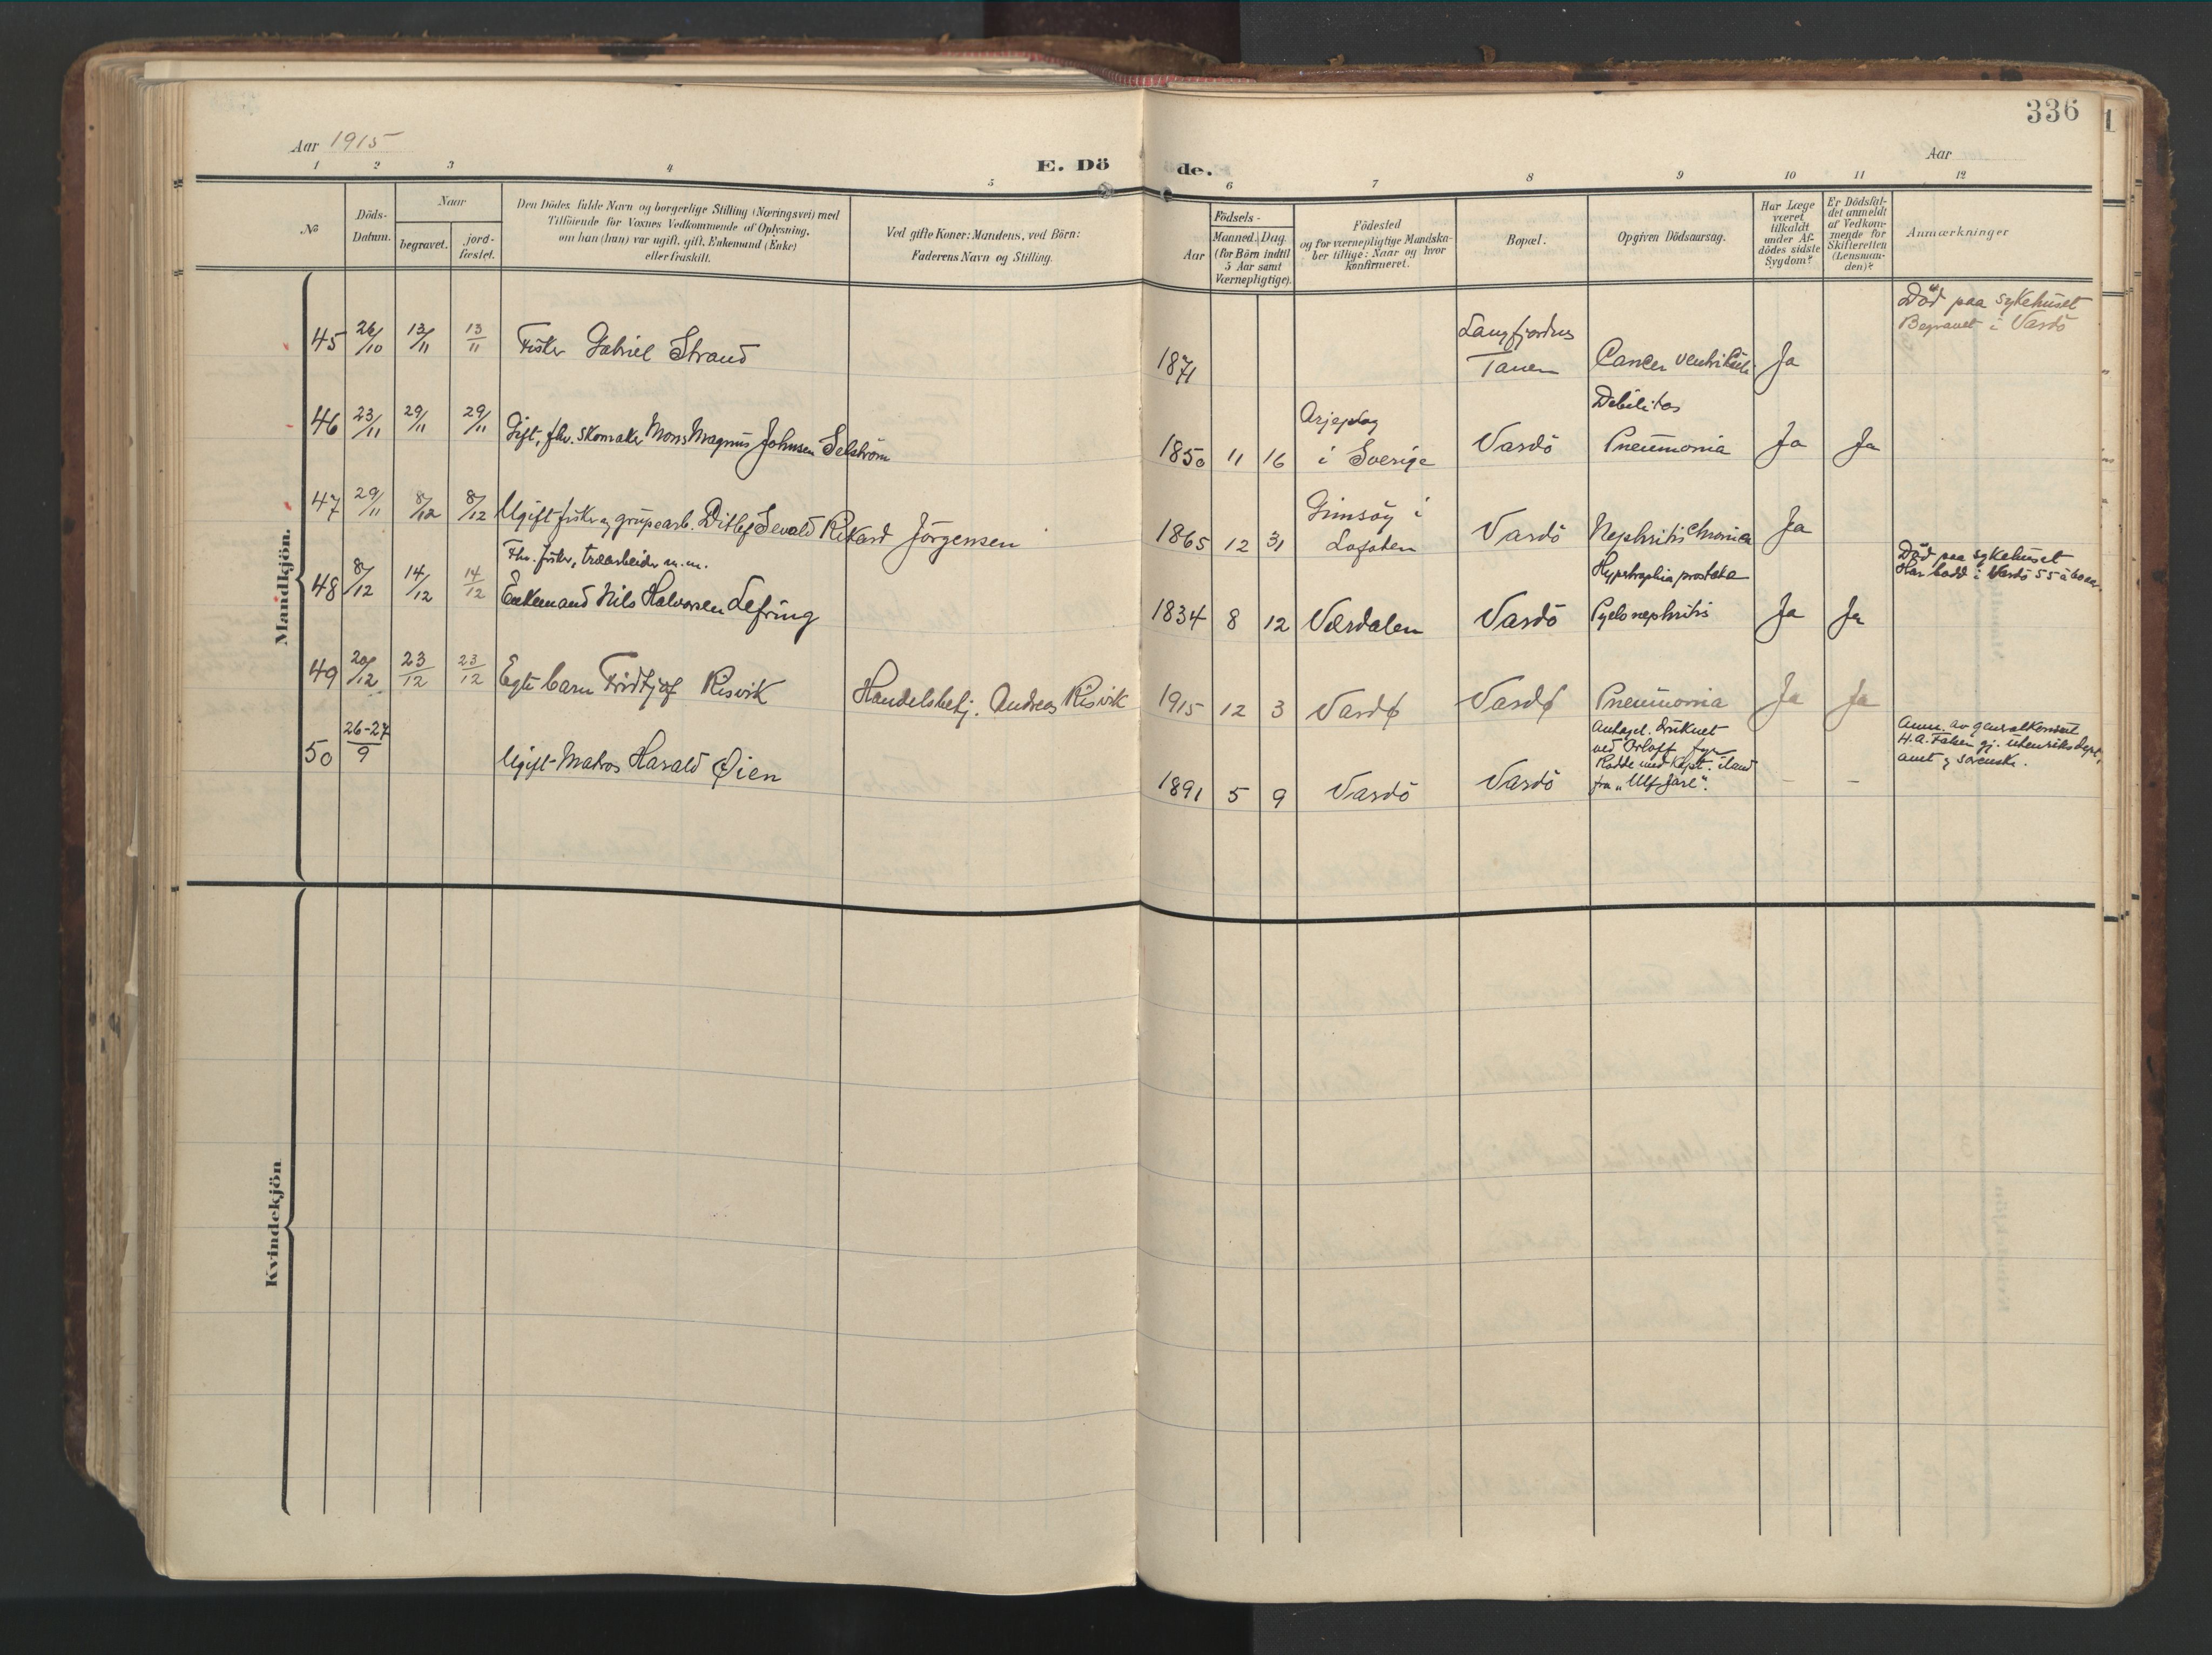 336
Aar 1915
Aar
E. Dö de.
1 2 3 4 5 6 7 8 9 10 11 12
No
Döds-
Datum.
Naar
begravet.
jord-
fæstet.
Den Dödes fulde Navn og borgerlige Stilling (Næringsvei) med
Tilföiende for Voxnes Vedkommende af Oplysning,
om han (hun) var ugift, gift, Enkemand (Enke)
eller fraskilt.
Ved gifte Koner: Mandens, ved Börn:
Faderens Navn og Stilling.
Födsels-
Aar
Maaned. Dag.
(for Börn indtil
5 Aar samt
Værnepligtige).
Födested
og for værnepligtige Mandska-
ber tillige: Naar og hvor
konfirmeret.
Bopæl.
Opgiven Dödsaarsag.
Har Læge
været
tilkaldt
under Af-
dödes sidste
Sygdom?
Er Dödsfal-
det anmeldt
af Vedkom-
mende for
Skifteretten
(Lensman-
den)?
Anmærkninger
Mandkjön.
45 26/10 13/11 13/11 Fisker Gabriel Strand
1871
Langfjordnes
Tanen Cancer ventriculi Ja
Död paa sykehuset
Begravet i Vardö
46 23/11 29/11 29/11 Gift, fhv. skomaker Mons Magnus Johnsen Selström
1850 11 16
Arjeplog
i Sverige
Vardö
Debilitas
Pneumonia Ja Ja
47 29/11 8/12 8/12 Ugift fisker og grupearb. Ditlef Sevald Rikard Jörgensen
1865 12 31
Gimsöy i
Lofoten
Vardö Nephritis Chronica Ja
48 8/12 14/12 14/12
Fhv. fisker, træarbeider m.m.
Enkemand Nils Halvorsen Lefring
1834 8 12 Værdalen Vardö
Hypertrophia prostata
Pyelonephritis Ja Ja
Död paa sykehuset
Har bodd i Vardö 55 à 60 aar.
49 20/12 23/12 23/12 Egte barn Fridtjof Risvik
Handelsbetj. Andreas Risvik
1915 12 3 Vardø Vardø Pneumonia Ja Ja
50 26-27/9 Ugift Matros Harald Øien
1891 5 9 Vardö Vardö
Antagel. druknet
ved Orloff fyr
Rodde med kapt. iland
fra "Ulf Jarl".
– –
Anm. av generalkonsul
H.A. Falsen gj. utenriksdept,
amt og sorenskr.
Kvindekjön